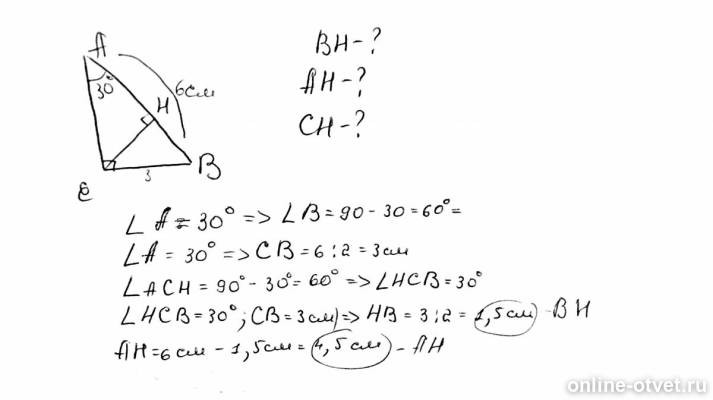 A
30°
6см
H
B
3
C
BH-?
AH-?
CH-?
∠A=30° => ∠B=90-30=60°=
∠A=30° => CB=6:2=3см
∠ACH=90°-30°=60° => ∠HCB=30°
∠HCB=30°; CB=3см) => HB=3:2=1,5см -BH
AH=6см-1,5см=4,5см -AH
online-otvet.ru